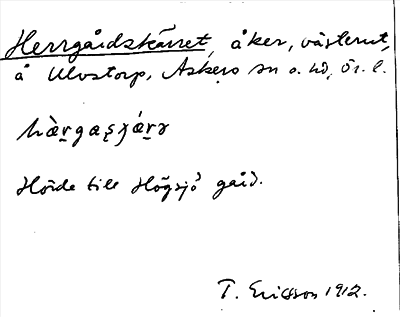 Herrgårdskärret, åker, västerut,
å Ulvstorp, Askers sn o. hd, Ör. l.
hàṟgaʂɣáṟə
Hörde till Högsjö gård.
T. Ericsson 1912.